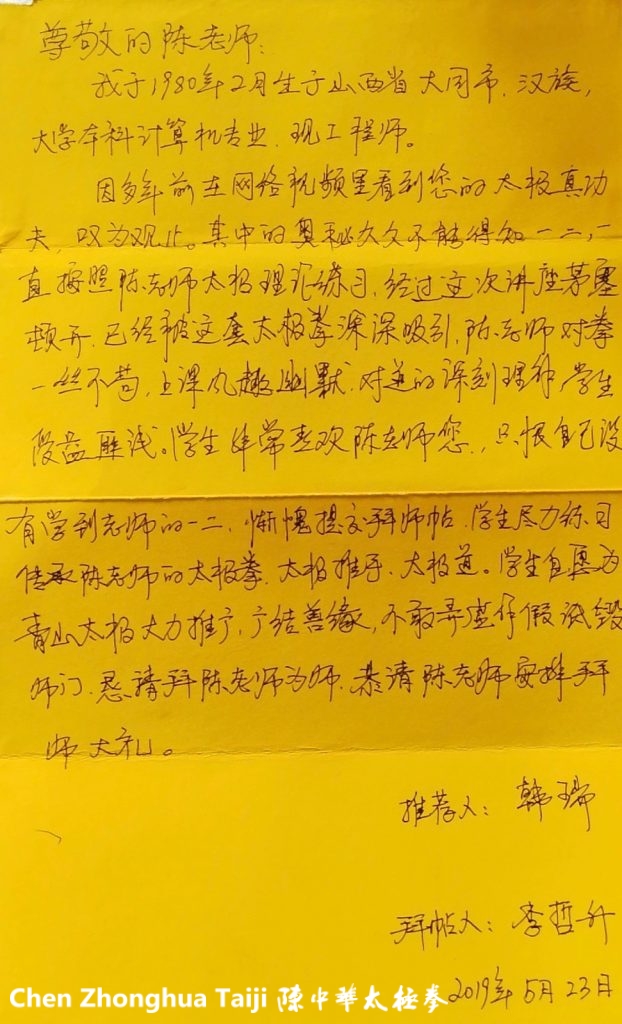 尊敬的陈老师:
我于1980年2月生于山西省大同市,汉族,
大学本科计算机专业,现工程师。
因多年前在网络视频里看到您的太极真功
夫,叹为观止。其中的奥秘久久不能得知一二,一
直按照陈老师太极理论练习,经过这次讲座茅塞
顿开,已经被这套太极拳深深吸引,陈老师对拳
一丝不苟,上课风趣幽默,对道的深刻理解,学生
受益匪浅。学生非常喜欢陈老师您,只恨自己没
有学到老师的一二,惭愧提交拜师帖,学生尽力练习
传承陈老师的太极拳,太极推手,太极道。学生自愿为
青山太极大力推广,广结善缘,不敢弄虚作假诋毁
师门,恳请拜陈老师为师,恭请陈老师安排拜
师大礼。
推荐人:韩瑞
拜帖人:李哲升
2019年5月23日
Chen Zhonghua Taiji 陳中華太極拳